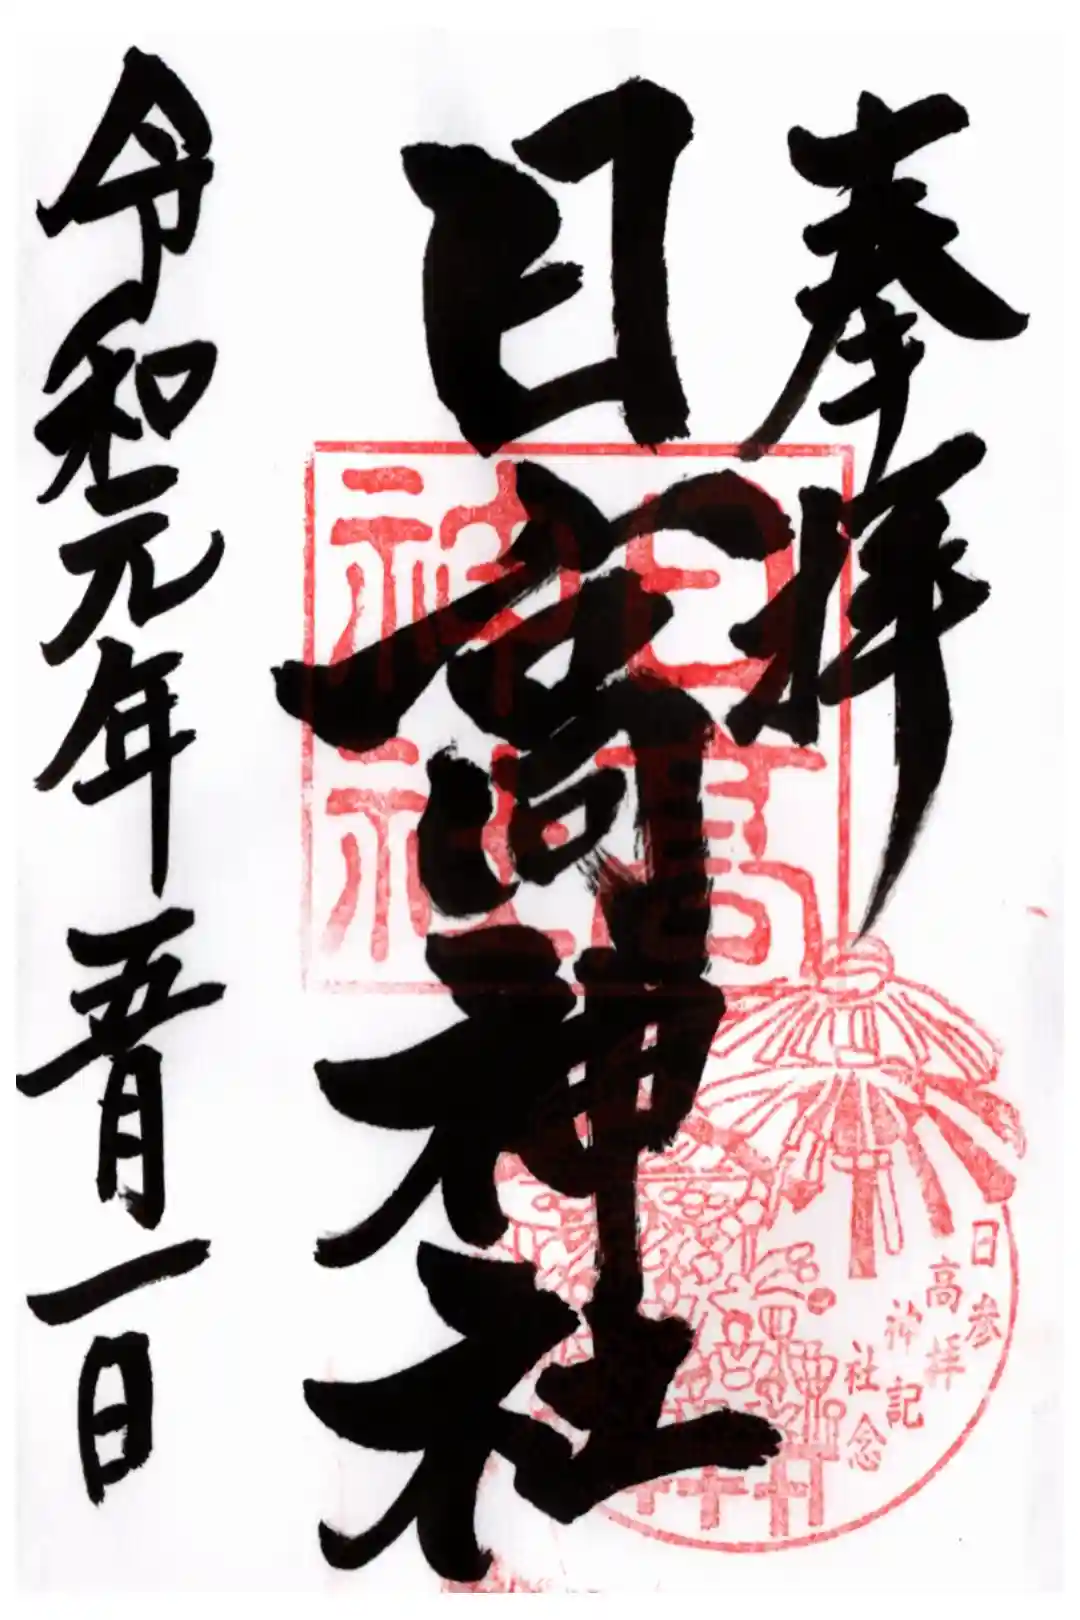 奉拝
日高神社
令和元年五月一日
日高
神社
日高神社
参拝記念